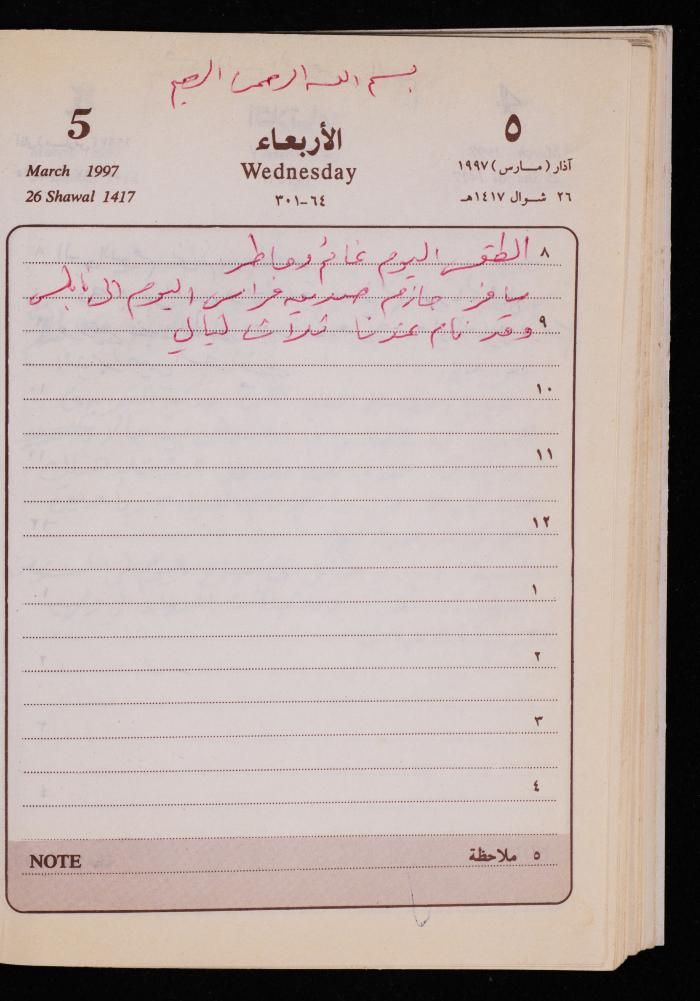 بسم الله الرحمن الرحيم
5
الأربعاء
٥
March 1997
Wednesday
آذار (مارس) ١٩٩٧
26 Shawal 1417
٣٠١-٦٤
٢٦ شوال ١٤١٧هـ
٨ الطقس اليوم غائم وماطر
سافر حازم صديق فراس اليوم الى نابلس
٩ وقد نام عندنا ثلاث ليالي
١٠
١١
١٢
١
٢
٣
٤
NOTE ٥ ملاحظة